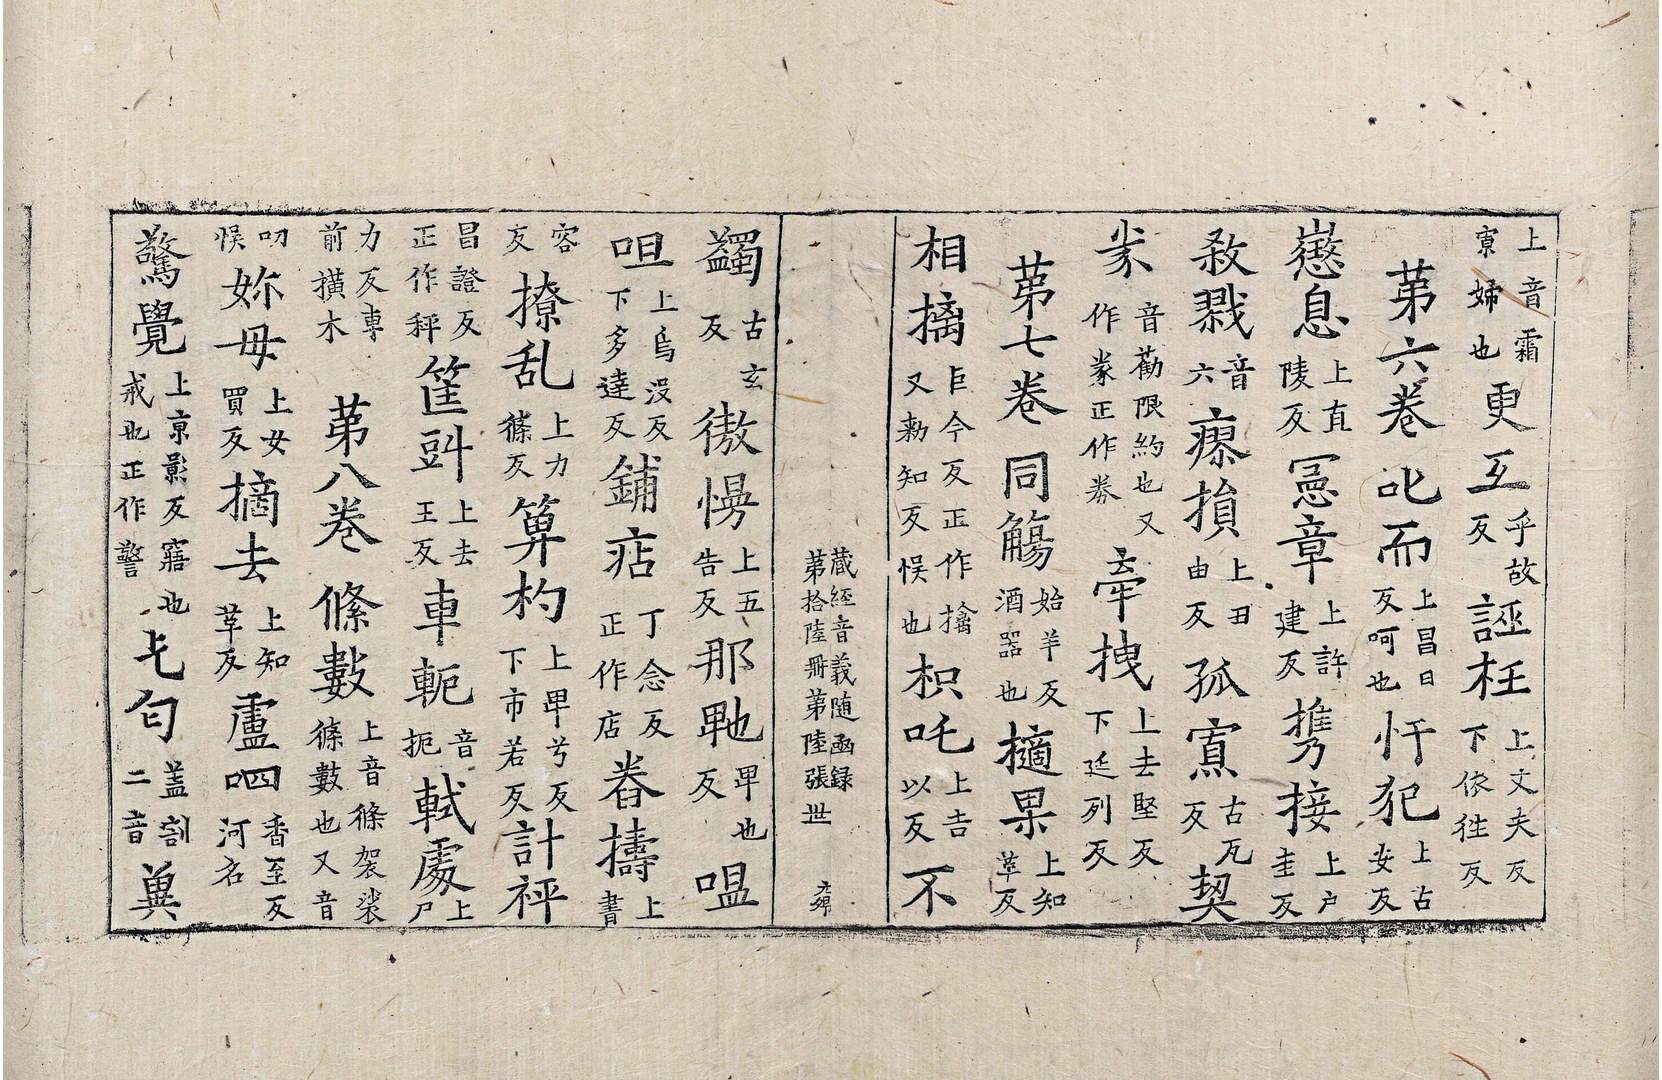 上音霜寡婦也更互乎故反誣枉上文夫反下依往反
苐六卷叱而上昌日反呵也忓犯上古安反
懲息上直陵反冕章上許建反携接上户圭反
敎戮音六瘝損上田由反孤寡古瓦反契
豢音勸限約也又作豢正作券牽拽上去堅反下延列反
苐七卷同觴始羊反酒器也擿果上知革反
相擒巨今反正作擒又勑知反悮也枳吒上吉以反不
藏經音義随函録
苐拾陸冊苐陸張世
蠲古玄反傲慢上五告反那𭻾卑也反嗢
呾上烏没反下多達反鋪痁丁念反正作店春擣上書
容反撩乱上力篠反算杓上卑兮反下市若反計秤
昌證反正作秤筐㪷上去王反車軛音扼軾處上尸
力反車前撗木苐八卷絛數上音絛袈裟篠數也又音
叨悮妳毋上女買反摘去上知革反盧呬香至反河名
驚覺上京影反寤也戒也正作警乇匄盖割二音糞